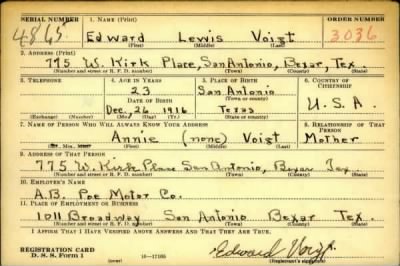 SERIAL NUMBER 1. NAME (Print) ORDER NUMBER
4865 Edward Lewis Voigt 3036
(First) (Middle) (Last)
2. ADDRESS (Print)
775 W. Kirk Place, San Antonio, Bexar, Tex.
(Number and street or R. F. D. number) (Town) (County) (State)
3. TELEPHONE 4. AGE IN YEARS 5. PLACE OF BIRTH 6. COUNTRY OF CITIZENSHIP
23 San Antonio
DATE OF BIRTH (Town or county)
Dec. 26, 1916 Texas U.S.A.
(Exchange) (Number) (Mo.) (Day) (Yr.) (State or country)
7. NAME OF PERSON WHO WILL ALWAYS KNOW YOUR ADDRESS 8. RELATIONSHIP OF THAT PERSON
Annie (none) Voigt Mother
(First) (Middle) (Last)
9. ADDRESS OF THAT PERSON
775 W. Kirk Place San Antonio, Bexar Tex.
(Number and street or R. F. D. number) (Town) (County) (State)
10. EMPLOYER'S NAME
A.B. Poe Motor Co.
11. PLACE OF EMPLOYMENT OR BUSINESS
1011 Broadway San Antonio Bexar Tex.
(Number and street or R. F. D. number) (Town) (County) (State)
I AFFIRM THAT I HAVE VERIFIED ABOVE ANSWERS AND THAT THEY ARE TRUE.
REGISTRATION CARD
D. S. S. Form 1 (over) Edward Voigt
(Registrant's signature)